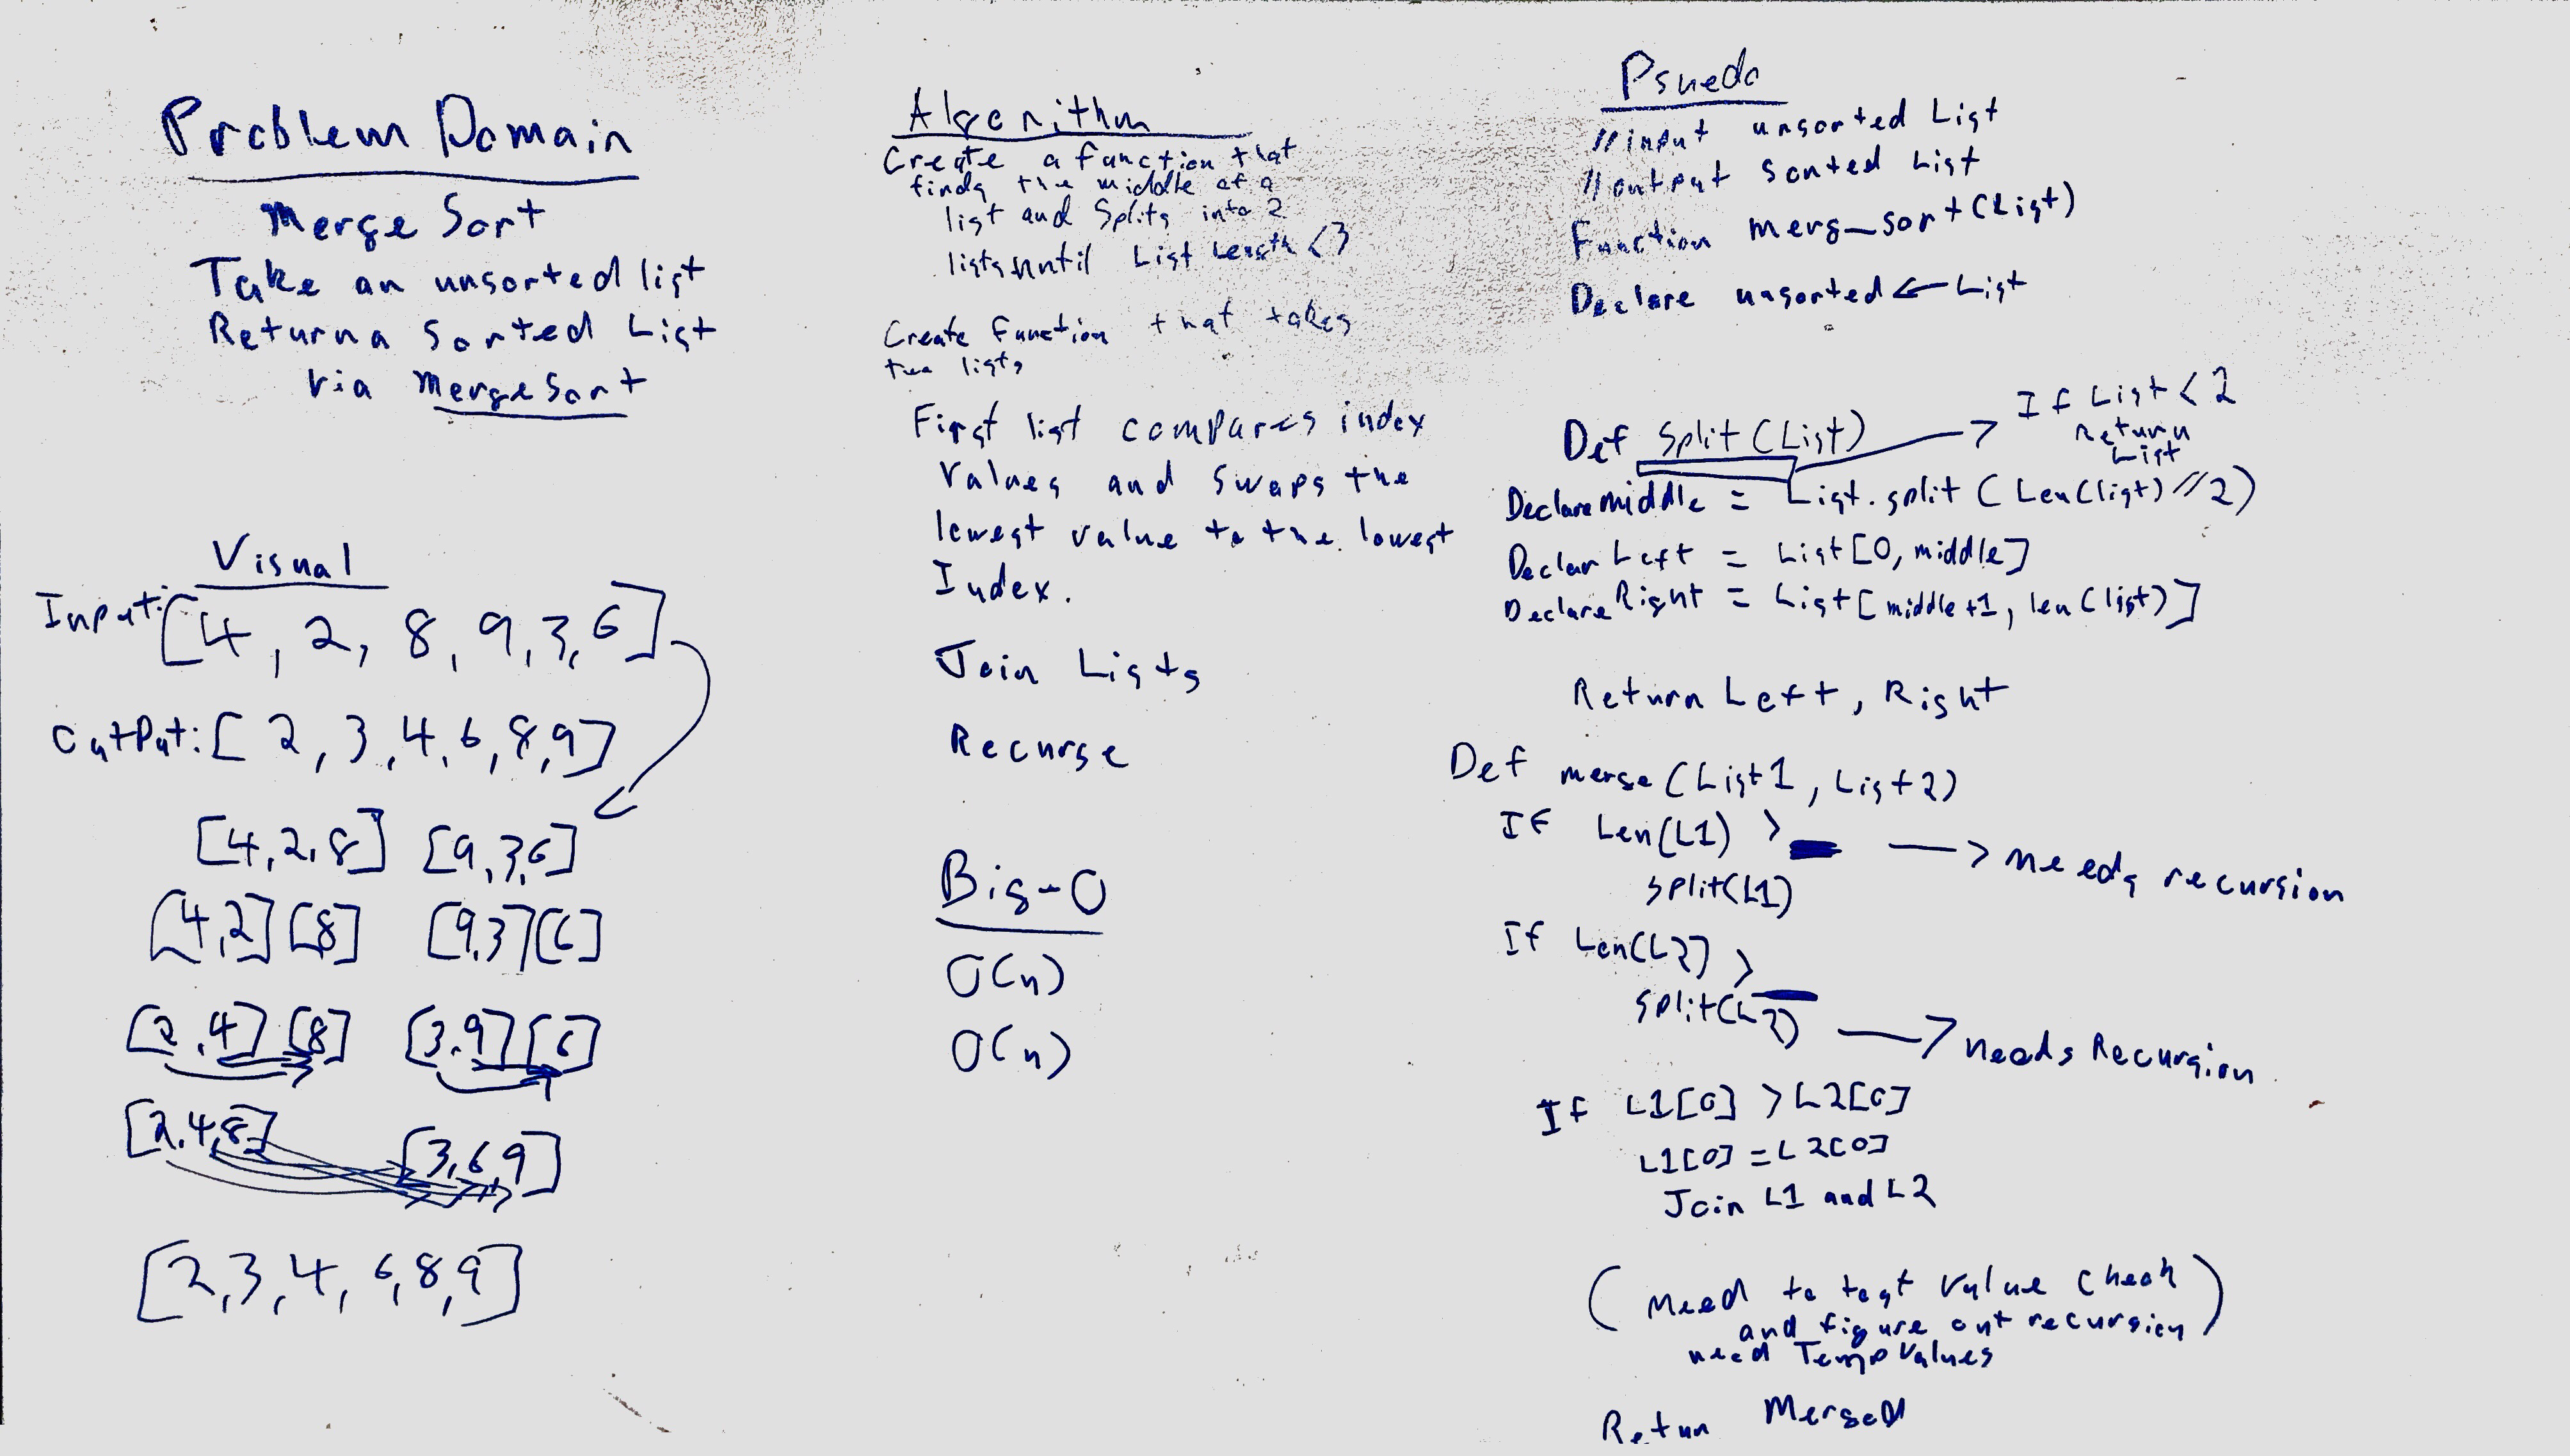 Problem Domain
Merge Sort
Take an unsorted list
Return a Sorted List
Via MergeSort
Visual
Input: [4, 2, 8, 9, 3, 6]
OutPut: [2, 3, 4, 6, 8, 9]
[4, 2, 8] [9, 3, 6]
[4, 2] [8] [9, 3] [6]
[2, 4] [8] [3, 9] [6]
[2, 4, 8] [3, 6, 9]
[2, 3, 4, 6, 8, 9]
Algorithm
Create a function that
finds the middle of a
list and splits into 2
lists until List Length < 3
Create Function that takes
two lists
First list compares index
values and swaps the
lowest value to the lowest
Index.
Join Lists
Recurse
Big-O
O(n)
O(n)
Psuedo
//input unsorted List
//output sorted List
Function merg_sort(List)
Declare unsorted ← List
Def split(List) → If List < 2
Return
List
Declare middle = List.split(Len(list)//2)
Declar Left = List[0, middle]
Declare Right = List[middle+1, len(list)]
Return Left, Right
Def merge(List1, List2)
If Len(L1) > → needs recursion
split(L1)
If Len(L2) >
split(L2) → needs Recursion
If L1[0] > L2[0]
L1[0] = L2[0]
Join L1 and L2
(Need to test value check
and figure out recursion)
need Temp Values
Retun Merged